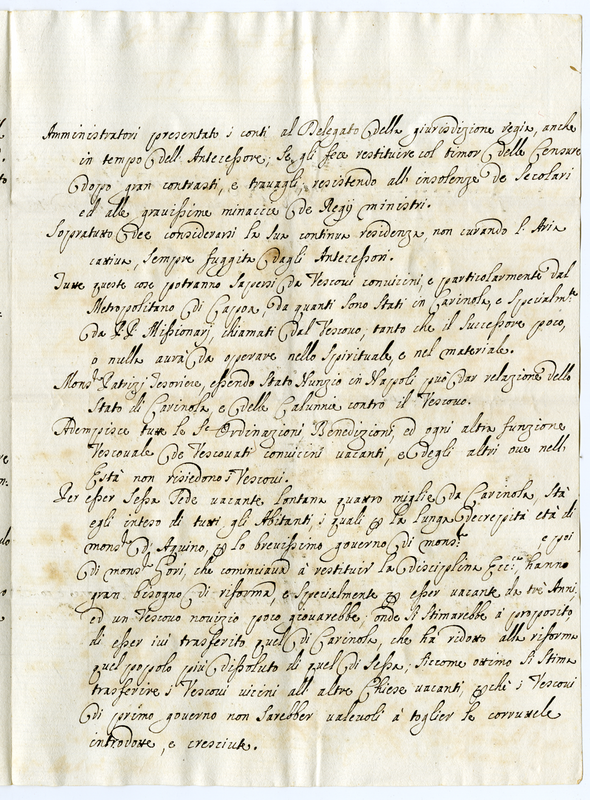 Amministratori presentato i conti al Delegato della giurisdizione regia, anche
in tempo dell' Antecessore, se gli fece restituire col timor delle Censure
dopo gran contrasti, e travagli, resistendo all' insolenze de Secolari
ed alle gravissime minaccie de Regij ministri.
Sopratutto dee considerarsi la sua continua residenza, non curando l' Aria
cattiva, sempre fuggita dagli Antecessori.
Tutte queste cose potranno sapersi da Vescovi convicini, e particolarmente dal
Metropolitano di Capoa, da quanti sono stati in Carinola, e specialmte
da PP. Missionarj, chiamati dal Vescovo, tanto che il successore poco,
o nulla aurà da operare nello spirituale, e nel materiale.
Monsr Patrizj Tesoriere, essendo stato Nunzio in Napoli può dar relazione dello
stato di Carinola, e delle Calunnie contro il Vescovo.
Adempisce tutte le Ste Ordinazioni Benedizioni, ed ogni altra funzione
Vescovale de Vescovati convicini vacanti, e degli altri ove nell'
Està non risiedono i Vescovi.
Per esser Sessa Sede vacante lontana quattro miglie da Carinola, stà
egli inteso di tutti gli Abitanti, i quali per la lunga decrepità età di
monsr d' Aquino, per lo brevissimo governo di monsr e poi
di monsr Gori, che cominciava à restituir la disciplina Eccca, hanno
gran bisogno di riforma, e specialmente per esser vacante da trè Anni,
ed un Vescovo novizio poco giovarebbe, onde si stimarebbe à proposito
di esser ivi trasferito quel di Carinola, che hà ridotto alla riforma
quel popolo più dissoluto di quel di Sessa, siccome ottimo si stima
trasferire i Vescovi vicini all' altre Chiese vacanti, perchè i Vescovi
di primo governo non sarebber valevoli à toglier le corruttele
introdotte, e cresciute.